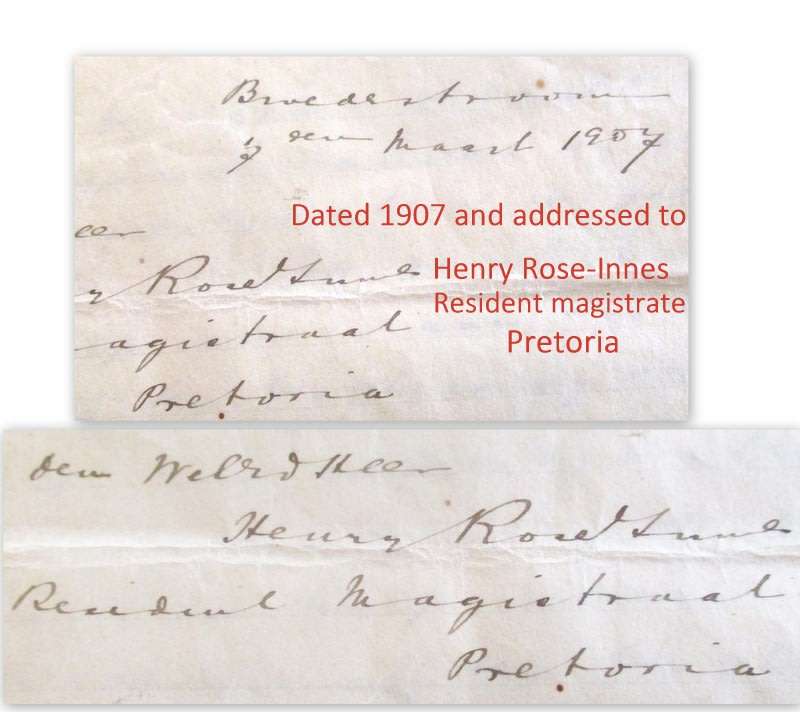 Broederstroom
7 den Maart 1907
Dated 1907 and addressed to
eer
y Rose Innes
Henry Rose-Innes
agistraat
Resident magistrate
Pretoria
Pretoria
den WelEd Heer
Henry Rose Innes
Resident Magistraat
Pretoria